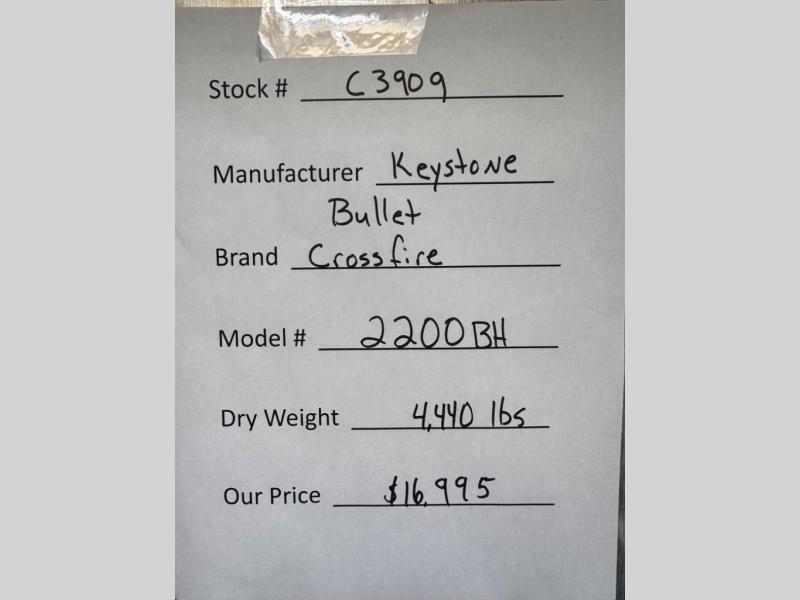 Stock # C3909
Manufacturer Keystone
Bullet
Brand Crossfire
Model # 2200BH
Dry Weight 4,440 lbs
Our Price $16,995